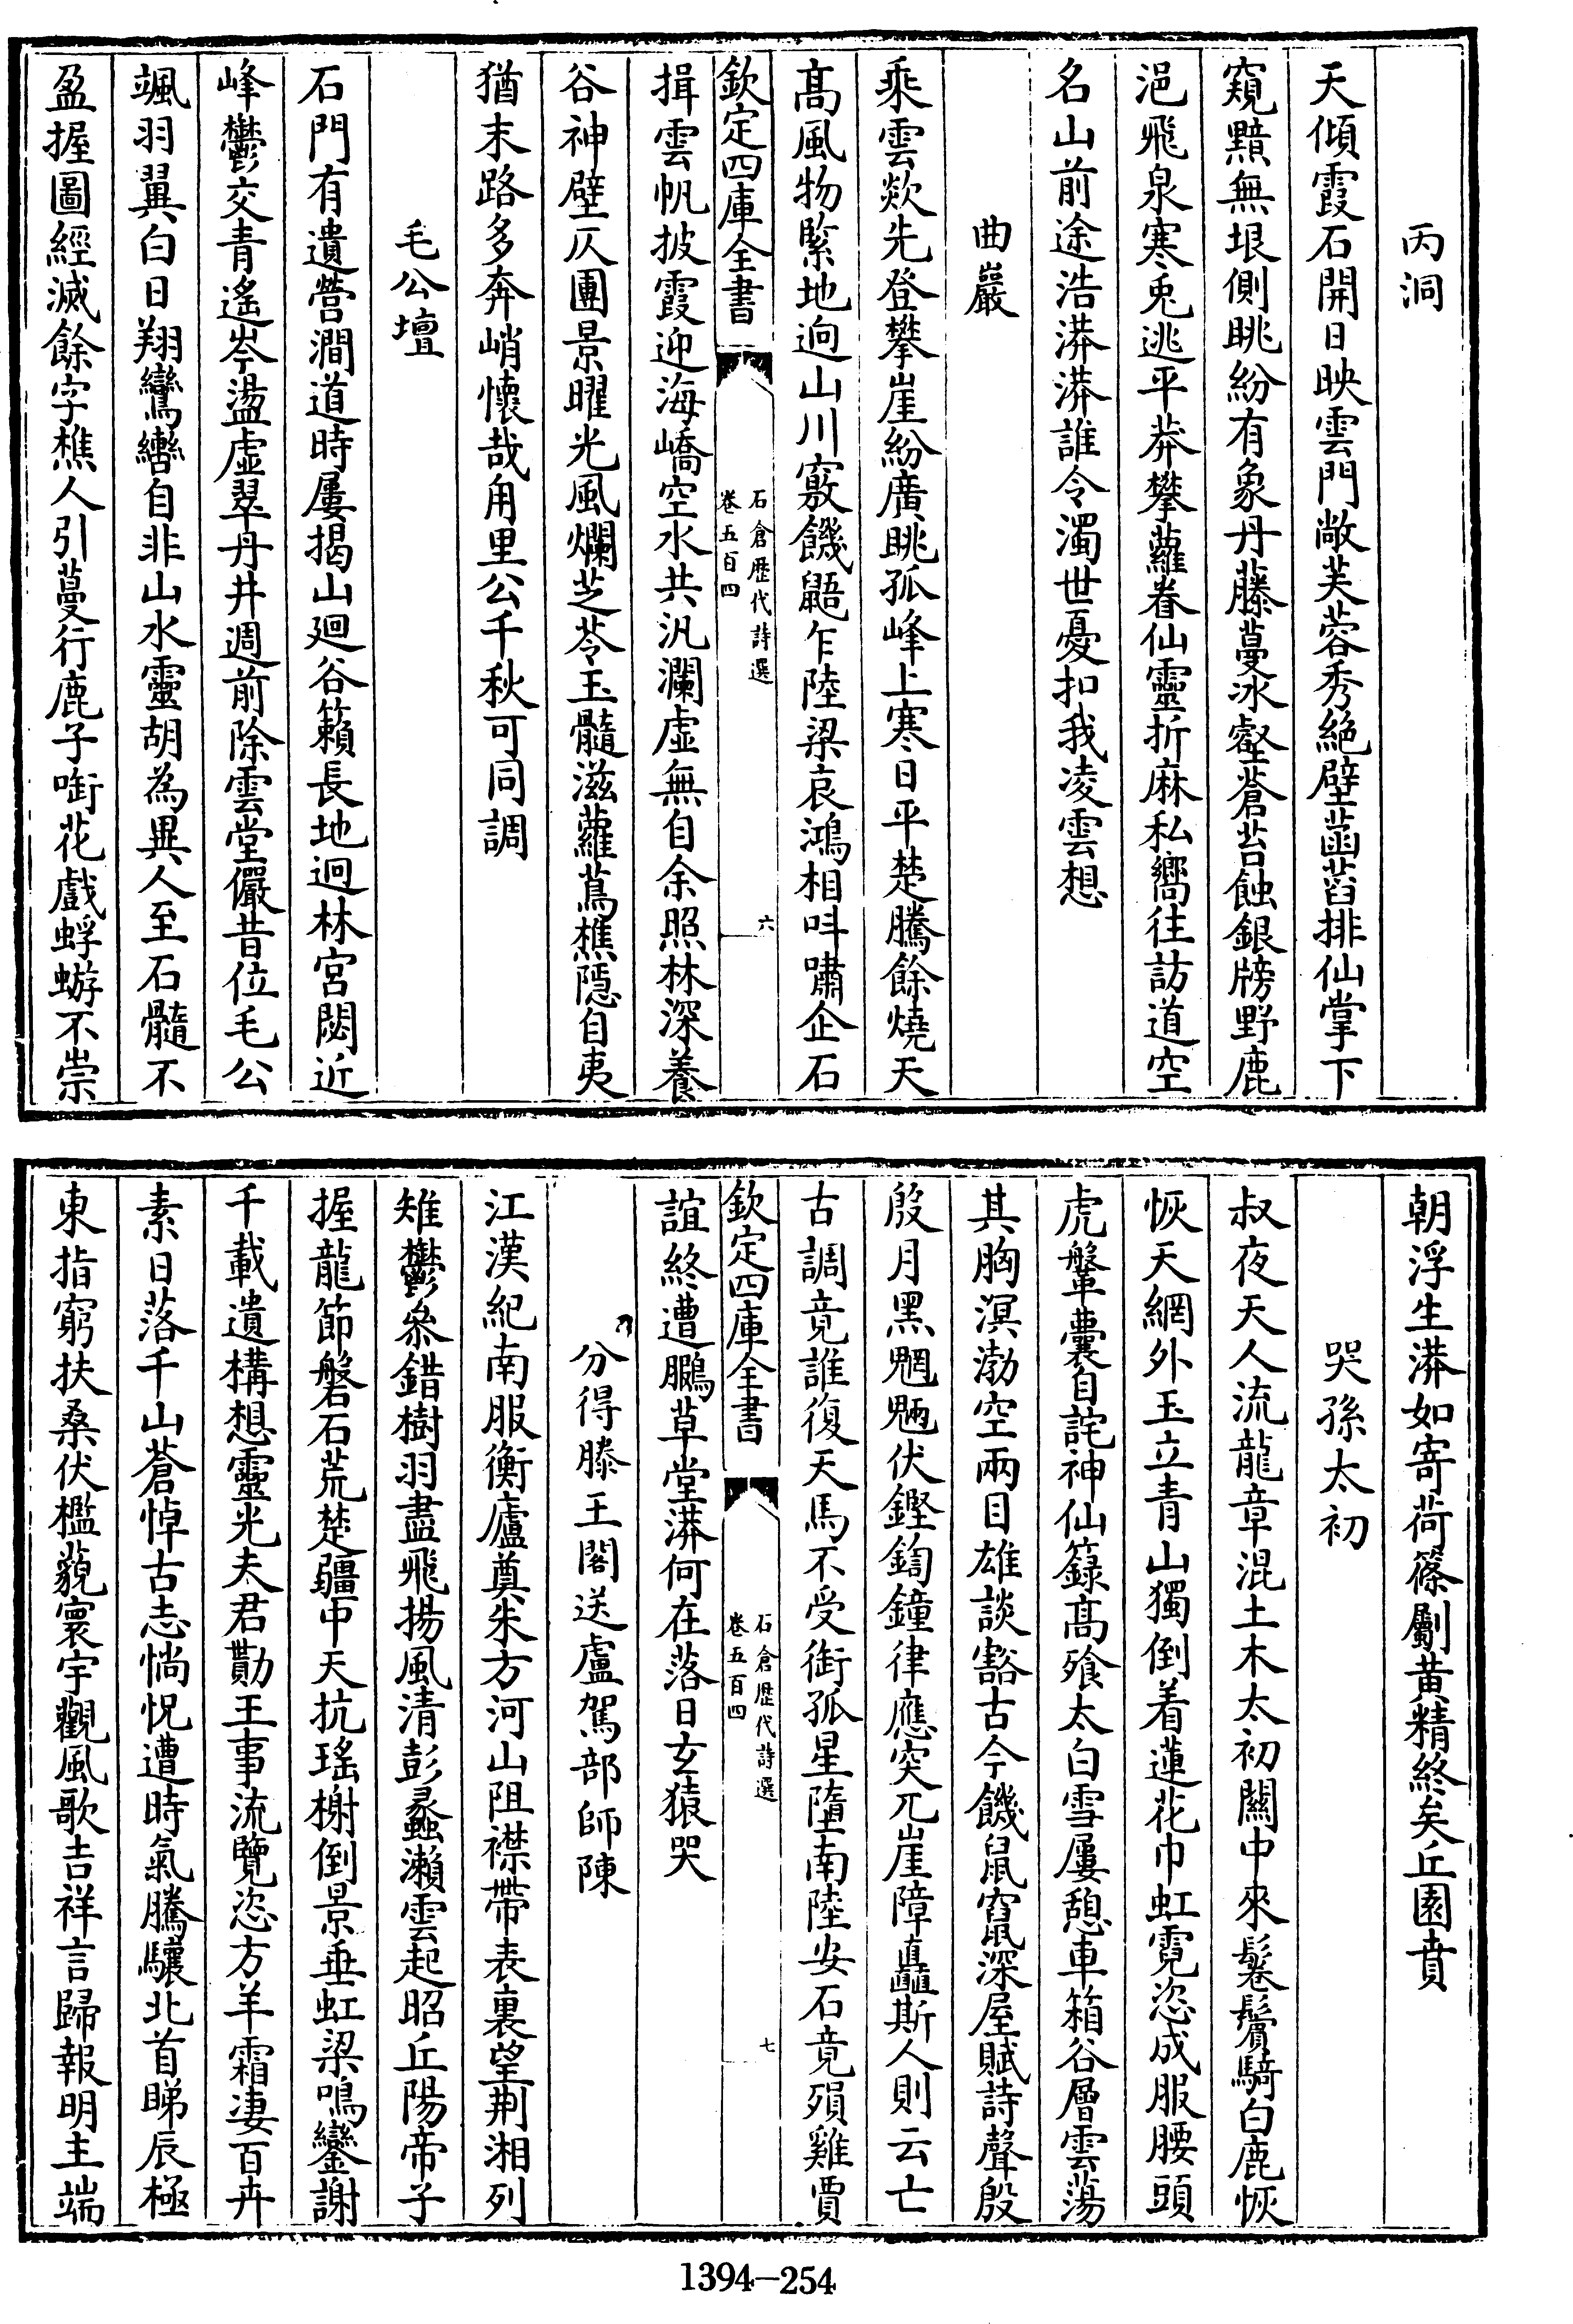 丙洞
天傾霞石開日映雲門敞芙蓉秀絕壁菡萏排仙掌下
窺黯無垠側眺紛有象丹藤蔓冰壑蒼苔蝕銀牓野鹿
浥飛泉寒兎逃平莽攀蘿眷仙靈折麻私嚮往訪道空
名山前途浩漭漭誰令濁世憂扣我凌雲想
曲巖
乘雲欻先登攀崖紛廣眺孤峰上寒日平楚騰餘燒天
髙風物緊地逈山川窽饑鼯乍陸梁哀鴻相呌嘯企石
欽定四庫全書
石倉歴代詩選
卷五百四
六
揖雲帆披霞迎海嶠空水共汎瀾虛無自余照林深養
谷神壁仄團景曜光風爛芝苓玉髓滋蘿蔦樵隱自夷
猶末路多奔峭懷哉甪里公千秋可同調
毛公壇
石門有遺營澗道時屢揭山廻谷籟長地迥林宮閟近
峰鬱交青遙岑盪虛翠丹井週前除雲堂儼昔位毛公
颯羽翼白日翔鸞轡自非山水靈胡為異人至石髓不
盈握圖經滅餘字樵人引蔓行鹿子㗸花戲蜉蝣不崇
朝浮生漭如寄荷篠劚黄精終矣丘園賁
哭孫太初
叔夜天人流龍章混土木太初關中來鬈鬢騎白鹿恢
恢天網外玉立青山獨倒着蓮花巾虹霓恣成服腰頭
虎鞶囊自詫神仙籙髙飱太白雪屢憩車箱谷層雲蕩
其胸溟渤空兩目雄談豁古今饑鼠竄深屋賦詩聲殷
殷月黑魍魎伏鏗鍧鐘律應突兀崖障矗斯人則云亡
古調竟誰復天馬不受銜孤星墮南陸安石竟殞雞賈
欽定四庫全書
石倉歴代詩選
卷五百四
七
誼終遭鵩草堂漭何在落日玄猿哭
分得滕王閣送盧駕部師陳
江漢紀南服衡廬奠朱方河山阻襟帶表裏望荆湘列
雉鬱叅錯樹羽盡飛揚風清彭蠡瀨雲起昭丘陽帝子
握龍節磐石荒楚疆中天抗瑤榭倒景垂虹梁鳴鑾謝
千載遺構想靈光夫君勩王事流覽恣方羊霜凄百卉
素日落千山蒼悼古志惝怳遭時氣騰驤北首睇辰極
東指窮扶桑伏檻藐寰宇觀風歌吉祥言歸報明主端
1394-254